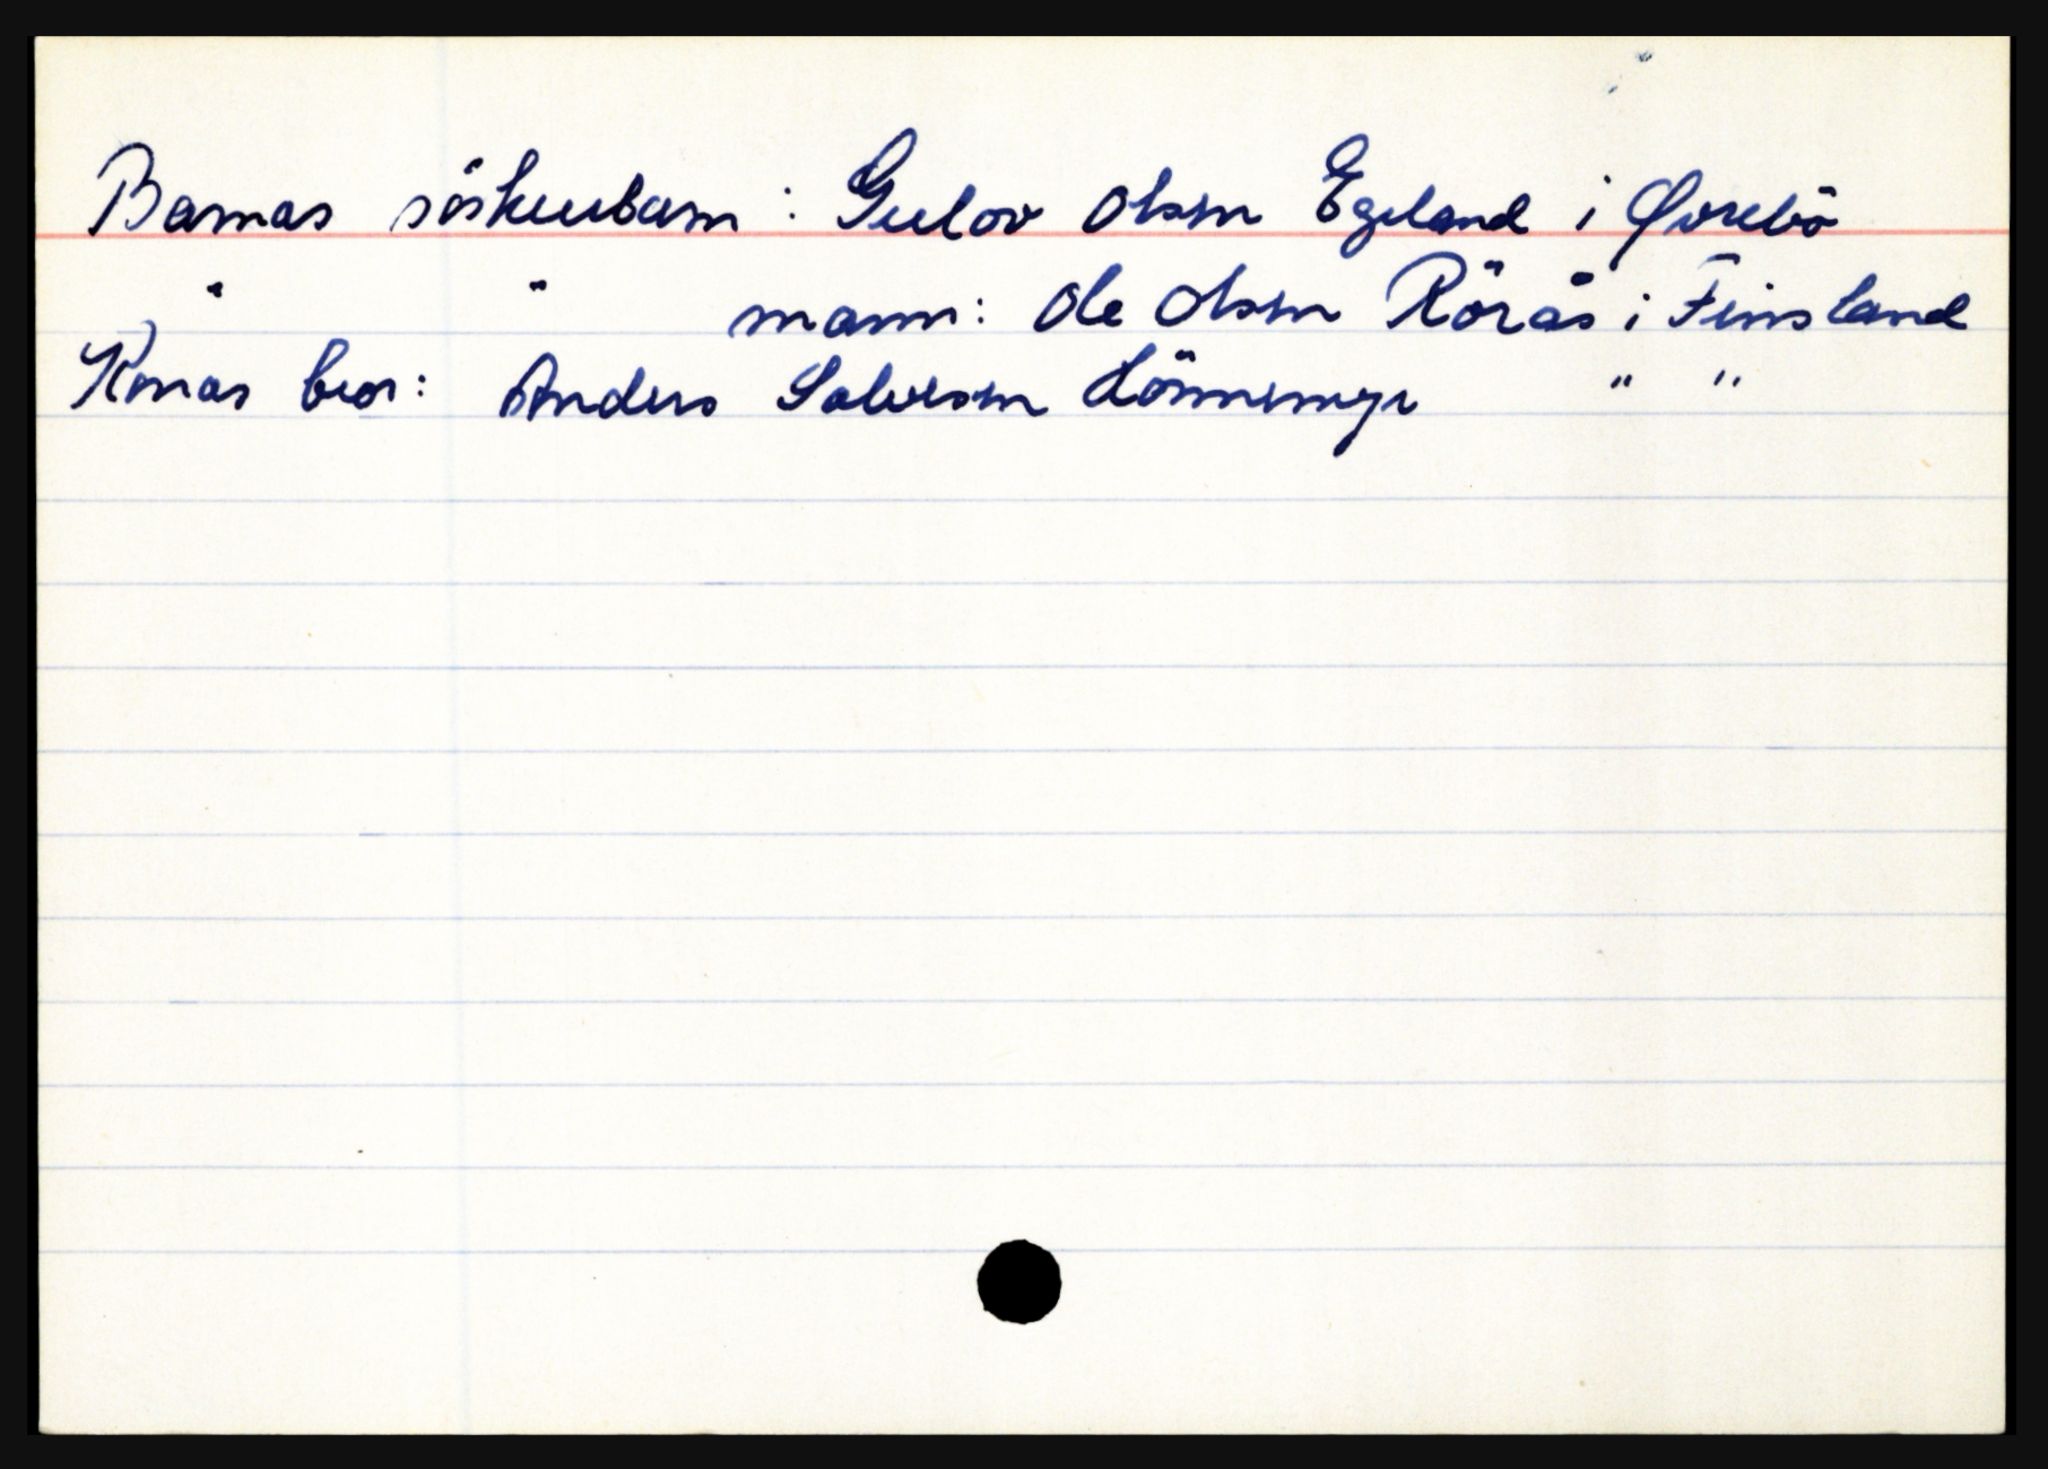 Barnas söskenbarn: Gulov Olsen Egeland i Øvrebö
" " mann: Ole Olsen Röras i Finsland
Konas bror: Anders Salvesen Hönnemyr " "